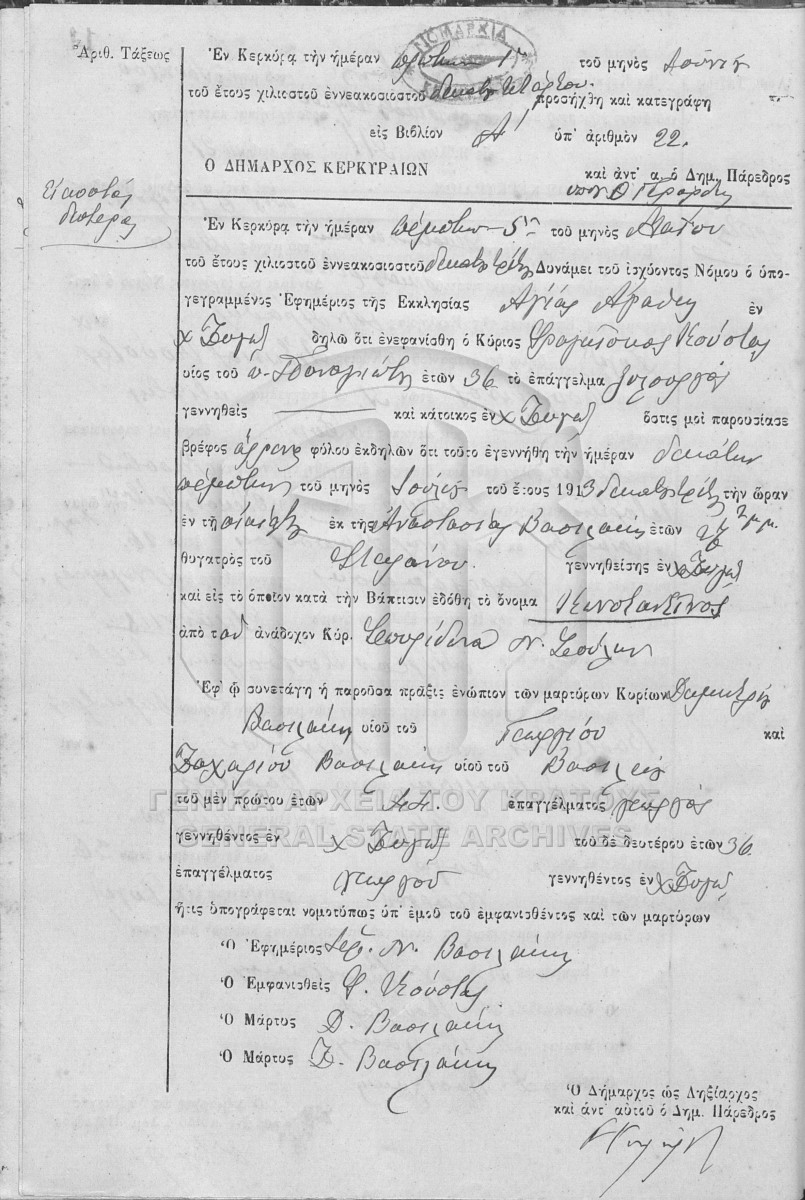 ΝΟΜΑΡΧΙΑ
Ἀριθ. Τάξεως
Ἐν Κερκύρᾳ τὴν ἡμέραν πρώτην 1ην τοῦ μηνὸς
τοῦ ἔτους χιλιοστοῦ ἐννεακοσιοστοῦ δεκάτου τετάρτου προσήχθη καὶ κατεγράφη
εἰς Βιβλίον Α' ὑπ' ἀριθμὸν 22.
Ο ΔΗΜΑΡΧΟΣ ΚΕΡΚΥΡΑΙΩΝ καὶ ἀντ' α. ὁ Δημ. Πάρεδρος
Εἰκοστὸς
δεύτερος
Ἐν Κερκύρᾳ τὴν ἡμέραν πέμπτην 5ην τοῦ μηνὸς Μαΐου
τοῦ ἔτους χιλιοστοῦ ἐννεακοσιοστοῦ Δυνάμει τοῦ ἰσχύοντος Νόμου ὁ ὑπο-
γεγραμμένος Ἐφημέριος τῆς Ἐκκλησίας Ἁγίας ἐν
χ Ζυγοῦ δηλῶ ὅτι ἐνεφανίσθη ὁ Κύριος Φραγκῖσκος Κούστας
υἱὸς τοῦ Παναγιώτη ἐτῶν 36 τὸ ἐπάγγελμα ξυλουργὸς
γεννηθεὶς καὶ κάτοικος ἐν χ Ζυγοῦ ὅστις μοὶ παρουσίασε
βρέφος ἄρρεν φύλου ἐκδηλῶν ὅτι τοῦτο ἐγεννήθη τὴν ἡμέραν δεκάτην
πέμπτην τοῦ μηνὸς τοῦ ἔτους 1913 τὴν ὥραν
ἐν τῇ οἰκίᾳ ἐκ τῆς Ἀναστασίας Βασιλάκη ἐτῶν
θυγατρὸς τοῦ Στεφάνου γεννηθείσης ἐν χ Ζυγοῦ
καὶ εἰς τὸ ὁποῖον κατὰ τὴν Βάπτισιν ἐδόθη τὸ ὄνομα Κωνσταντῖνος
ἀπὸ τοῦ ἀνάδοχον Κύρ. Σπυρίδωνα Ν.
Ἐφ' ᾧ συνετάγη ἡ παροῦσα πρᾶξις ἐνώπιον τῶν μαρτύρων Κυρίων Δημητρίου
Βασιλάκη υἱοῦ τοῦ Γεωργίου καὶ
Ζαχαρίου Βασιλάκη υἱοῦ τοῦ Βασιλείου
τοῦ μὲν πρώτου ἐτῶν 44. ἐπαγγέλματος γεωργὸς
γεννηθέντος ἐν χ Ζυγοῦ τοῦ δὲ δευτέρου ἐτῶν 36
ἐπαγγέλματος γεωργοῦ γεννηθέντος ἐν χ Ζυγοῦ
ἥτις ὑπογράφεται νομοτύπως ὑπ' ἐμοῦ τοῦ ἐμφανισθέντος καὶ τῶν μαρτύρων
Ὁ Ἐφημέριος Ἱερ. Ν. Βασιλάκης
Ὁ Ἐμφανισθεὶς Φ. Κούστας
Ὁ Μάρτυς Δ. Βασιλάκης
Ὁ Μάρτυς Ζ. Βασιλάκης
Ὁ Δήμαρχος ὡς Ληξίαρχος
καὶ ἀντ' αὐτοῦ ὁ Δημ. Πάρεδρος
ΓΕΝΙΚΑ ΑΡΧΕΙΑ ΤΟΥ ΚΡΑΤΟΥΣ
GENERAL STATE ARCHIVES